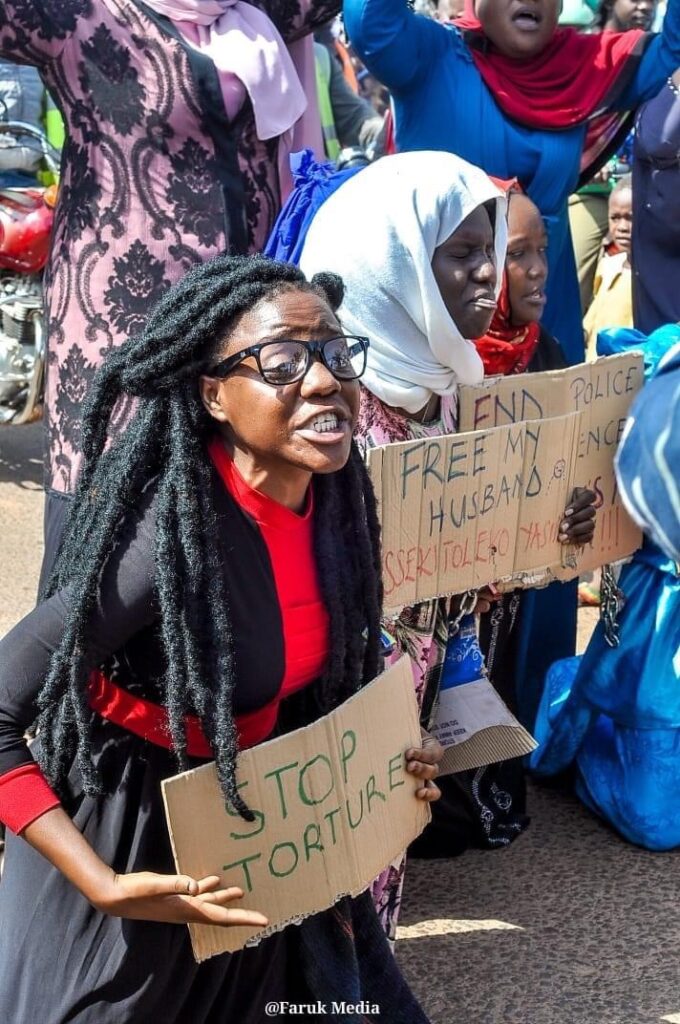 END POLICE
ENCE
FREE MY
HUSBAND
SSEKITOLEKO YASI
!!!
STOP
TORTURE
@Faruk Media